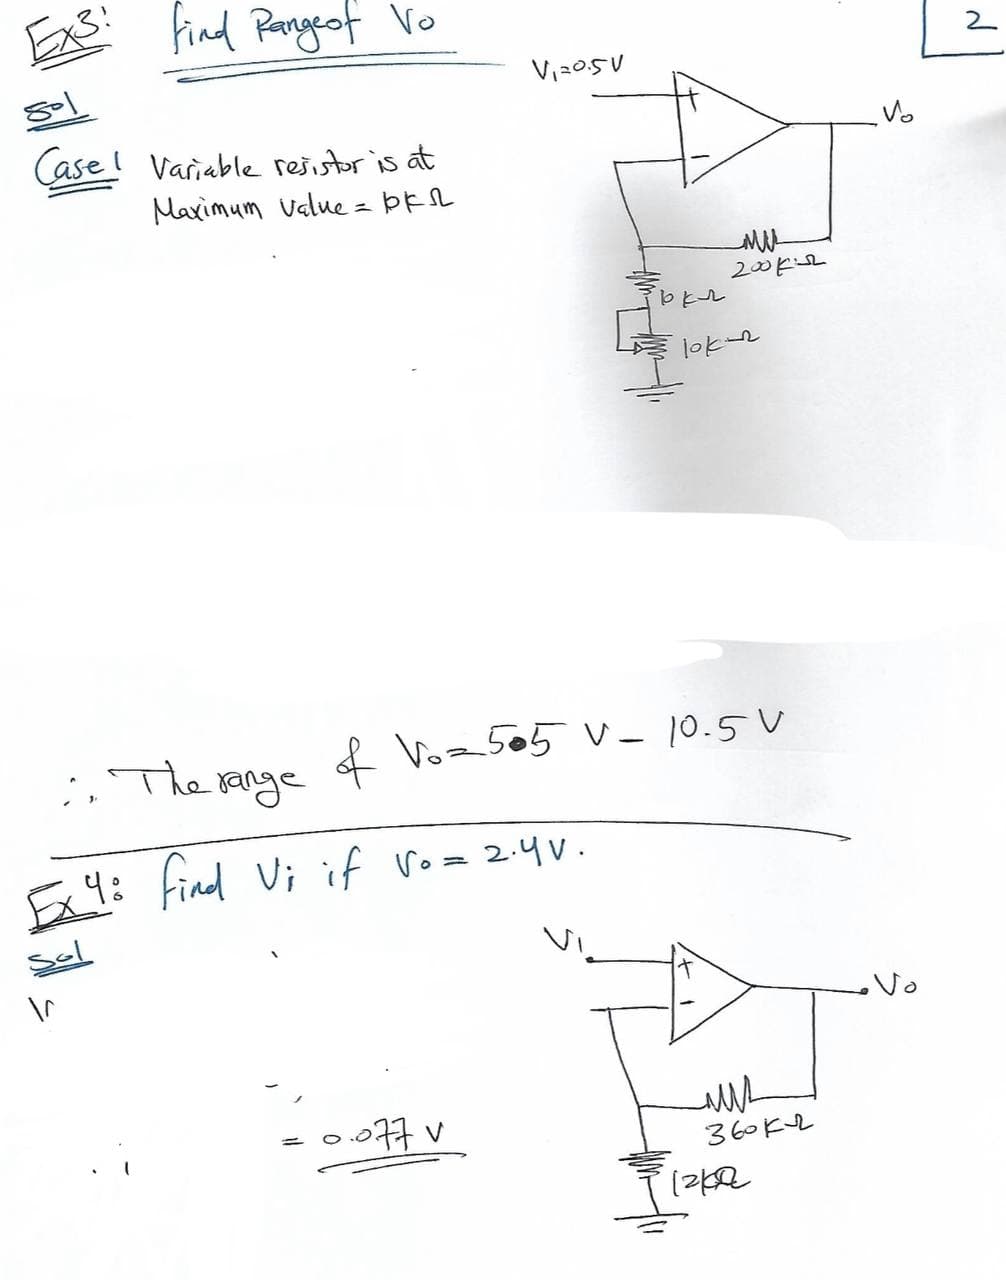 2
Ex3: find Range of Vo
sol
Case 1 Variable resistor is at
Maximum Value = 10kΩ
V1=0.5V
+
Vo
-
200kΩ
10kΩ
10kΩ
∴ The range of Vo = 5.5 V - 10.5 V
Ex 4: find Vi if Vo = 2.4V.
sol
V1
+
Vo
-
360kΩ
= 0.077 V
12kΩ